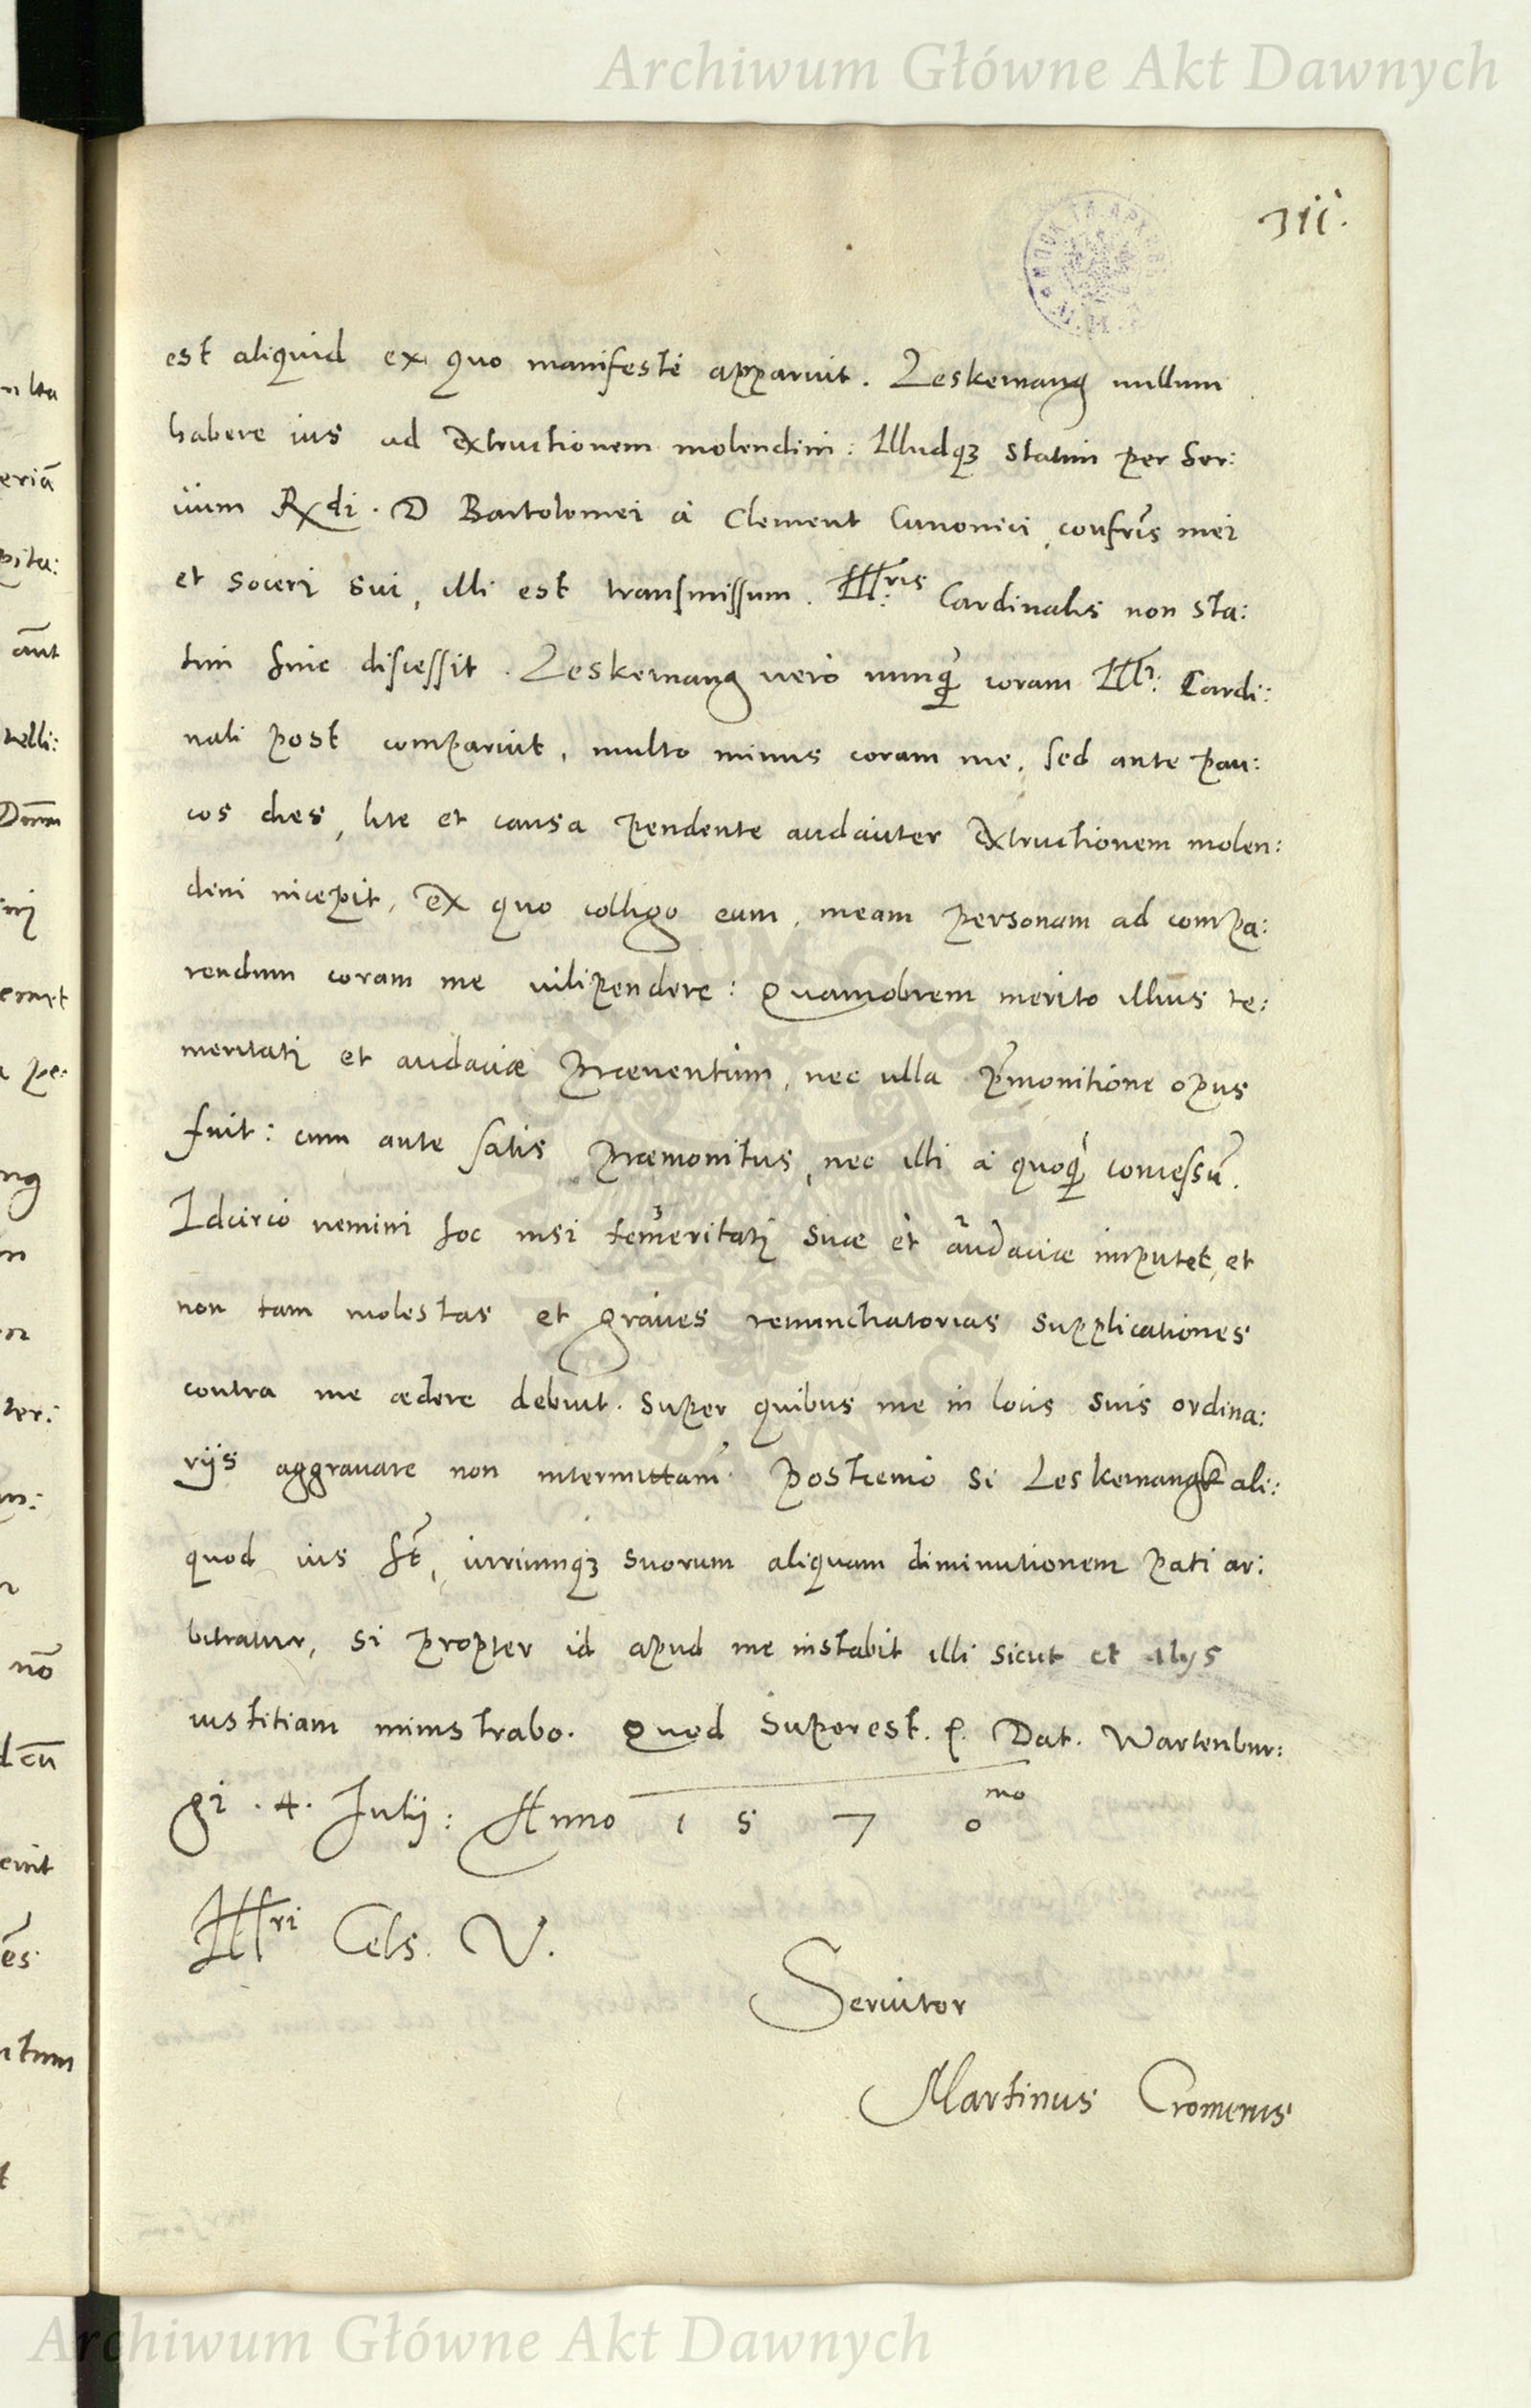 Archiwum Główne Akt Dawnych
311.
est aliquid ex quo manifeste apparuit. Leskewang nullum
habere ius ad extructionem molendini: Illudq3 statim per Ser:
uum Rdi. D Bartolomei à Clement Canonici, confris mei
et soceri sui, illi est transmissum. Illris Cardinalis non sta:
tim hinc discessit. Leskewang vero nunq̃ coram Illr: Cardi:
nali post comparuit, multo minus coram me, sed ante pau:
cos dies, lite et causa pendente audaciter extructionem molen:
dini incepit, ex quo colligo eum, meam personam ad compa:
rendum coram me vilipendere: Quamobrem merito illius te:
meritati et audaciæ præventum, nec ulla p̃monitione opus
fuit: cum ante satis præmonitus, nec illi à quoq̃ concessũ.
Idcirco nemini hoc nisi temeritati suæ et audaciæ imputet, et
non tam molestas et graves renunciatorias supplicationes
contra me ædere debuit. Super quibus me in locis suis ordina:
rijs aggravare non intermittam. Postremo si Leskewangk ali:
quod ius ht̃, iuriumq3 suorum aliquam diminutionem pati ar:
bitratur, si propter id apud me instabit illi sicut et alijs
iustitiam ministrabo. Quod superest. Dat. Wartenbur:
gi. 4. Julij: Anno 1 5 7 0 mo
Illri Cels. V.
Servitor
Martinus Cromerus
Archiwum Główne Akt Dawnych